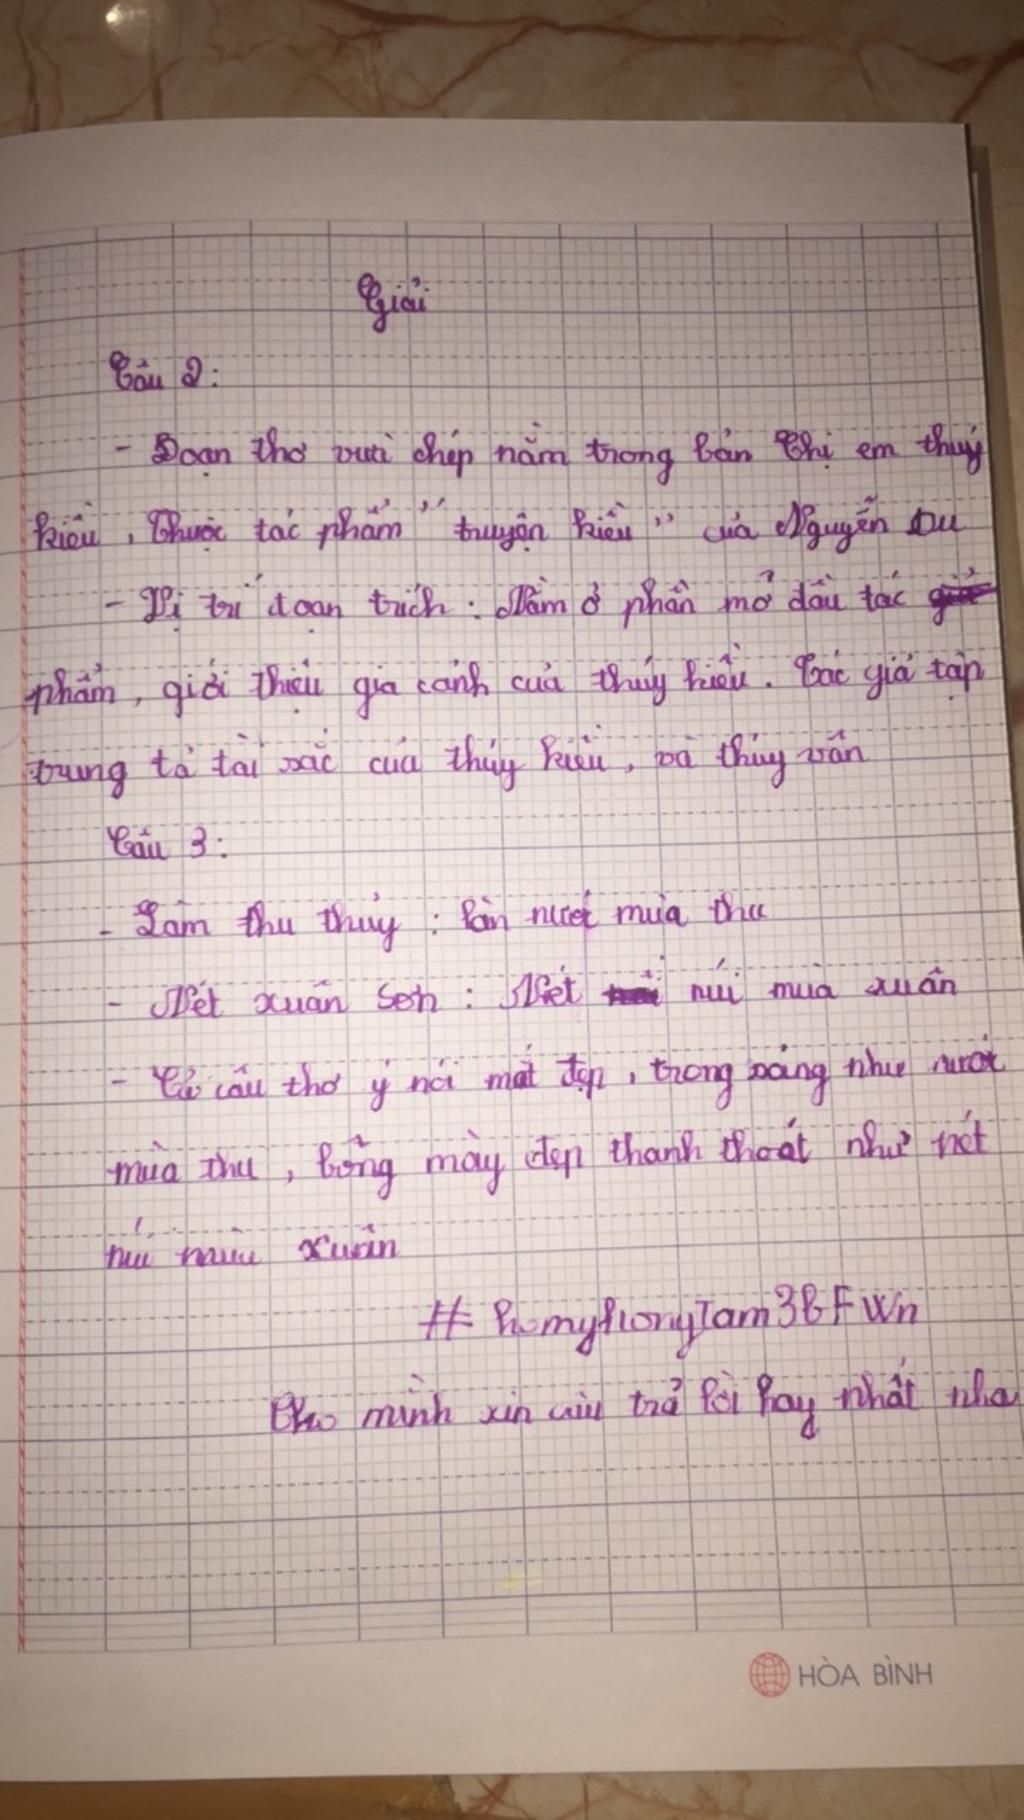 Giải
Câu 2:
- Đoạn thơ vưà chép nằm trong bản Chị em thuý
kiều, Thuộc tác phẩm "truyện kiều" của Nguyễn Du
- Vị trí đoạn trích: Nằm ở phần mở đầu tác
phẩm, giới thiệu gia cảnh của thuý kiều. Tác giả tập
trung tả tài sắc của thúy kiều, và thúy vân
Câu 3:
- Làm thu thủy: làn nước mùa thu
- Nét xuân sơn: Nét núi mùa xuân
- Cả câu thơ ý nói mắt đẹp, trong sáng như nước
mùa thu, lông mày đẹp thanh thoát như nét
núi mùa xuân
#
Cho mình xin câu trả lời hay nhất nha
HÒA BÌNH